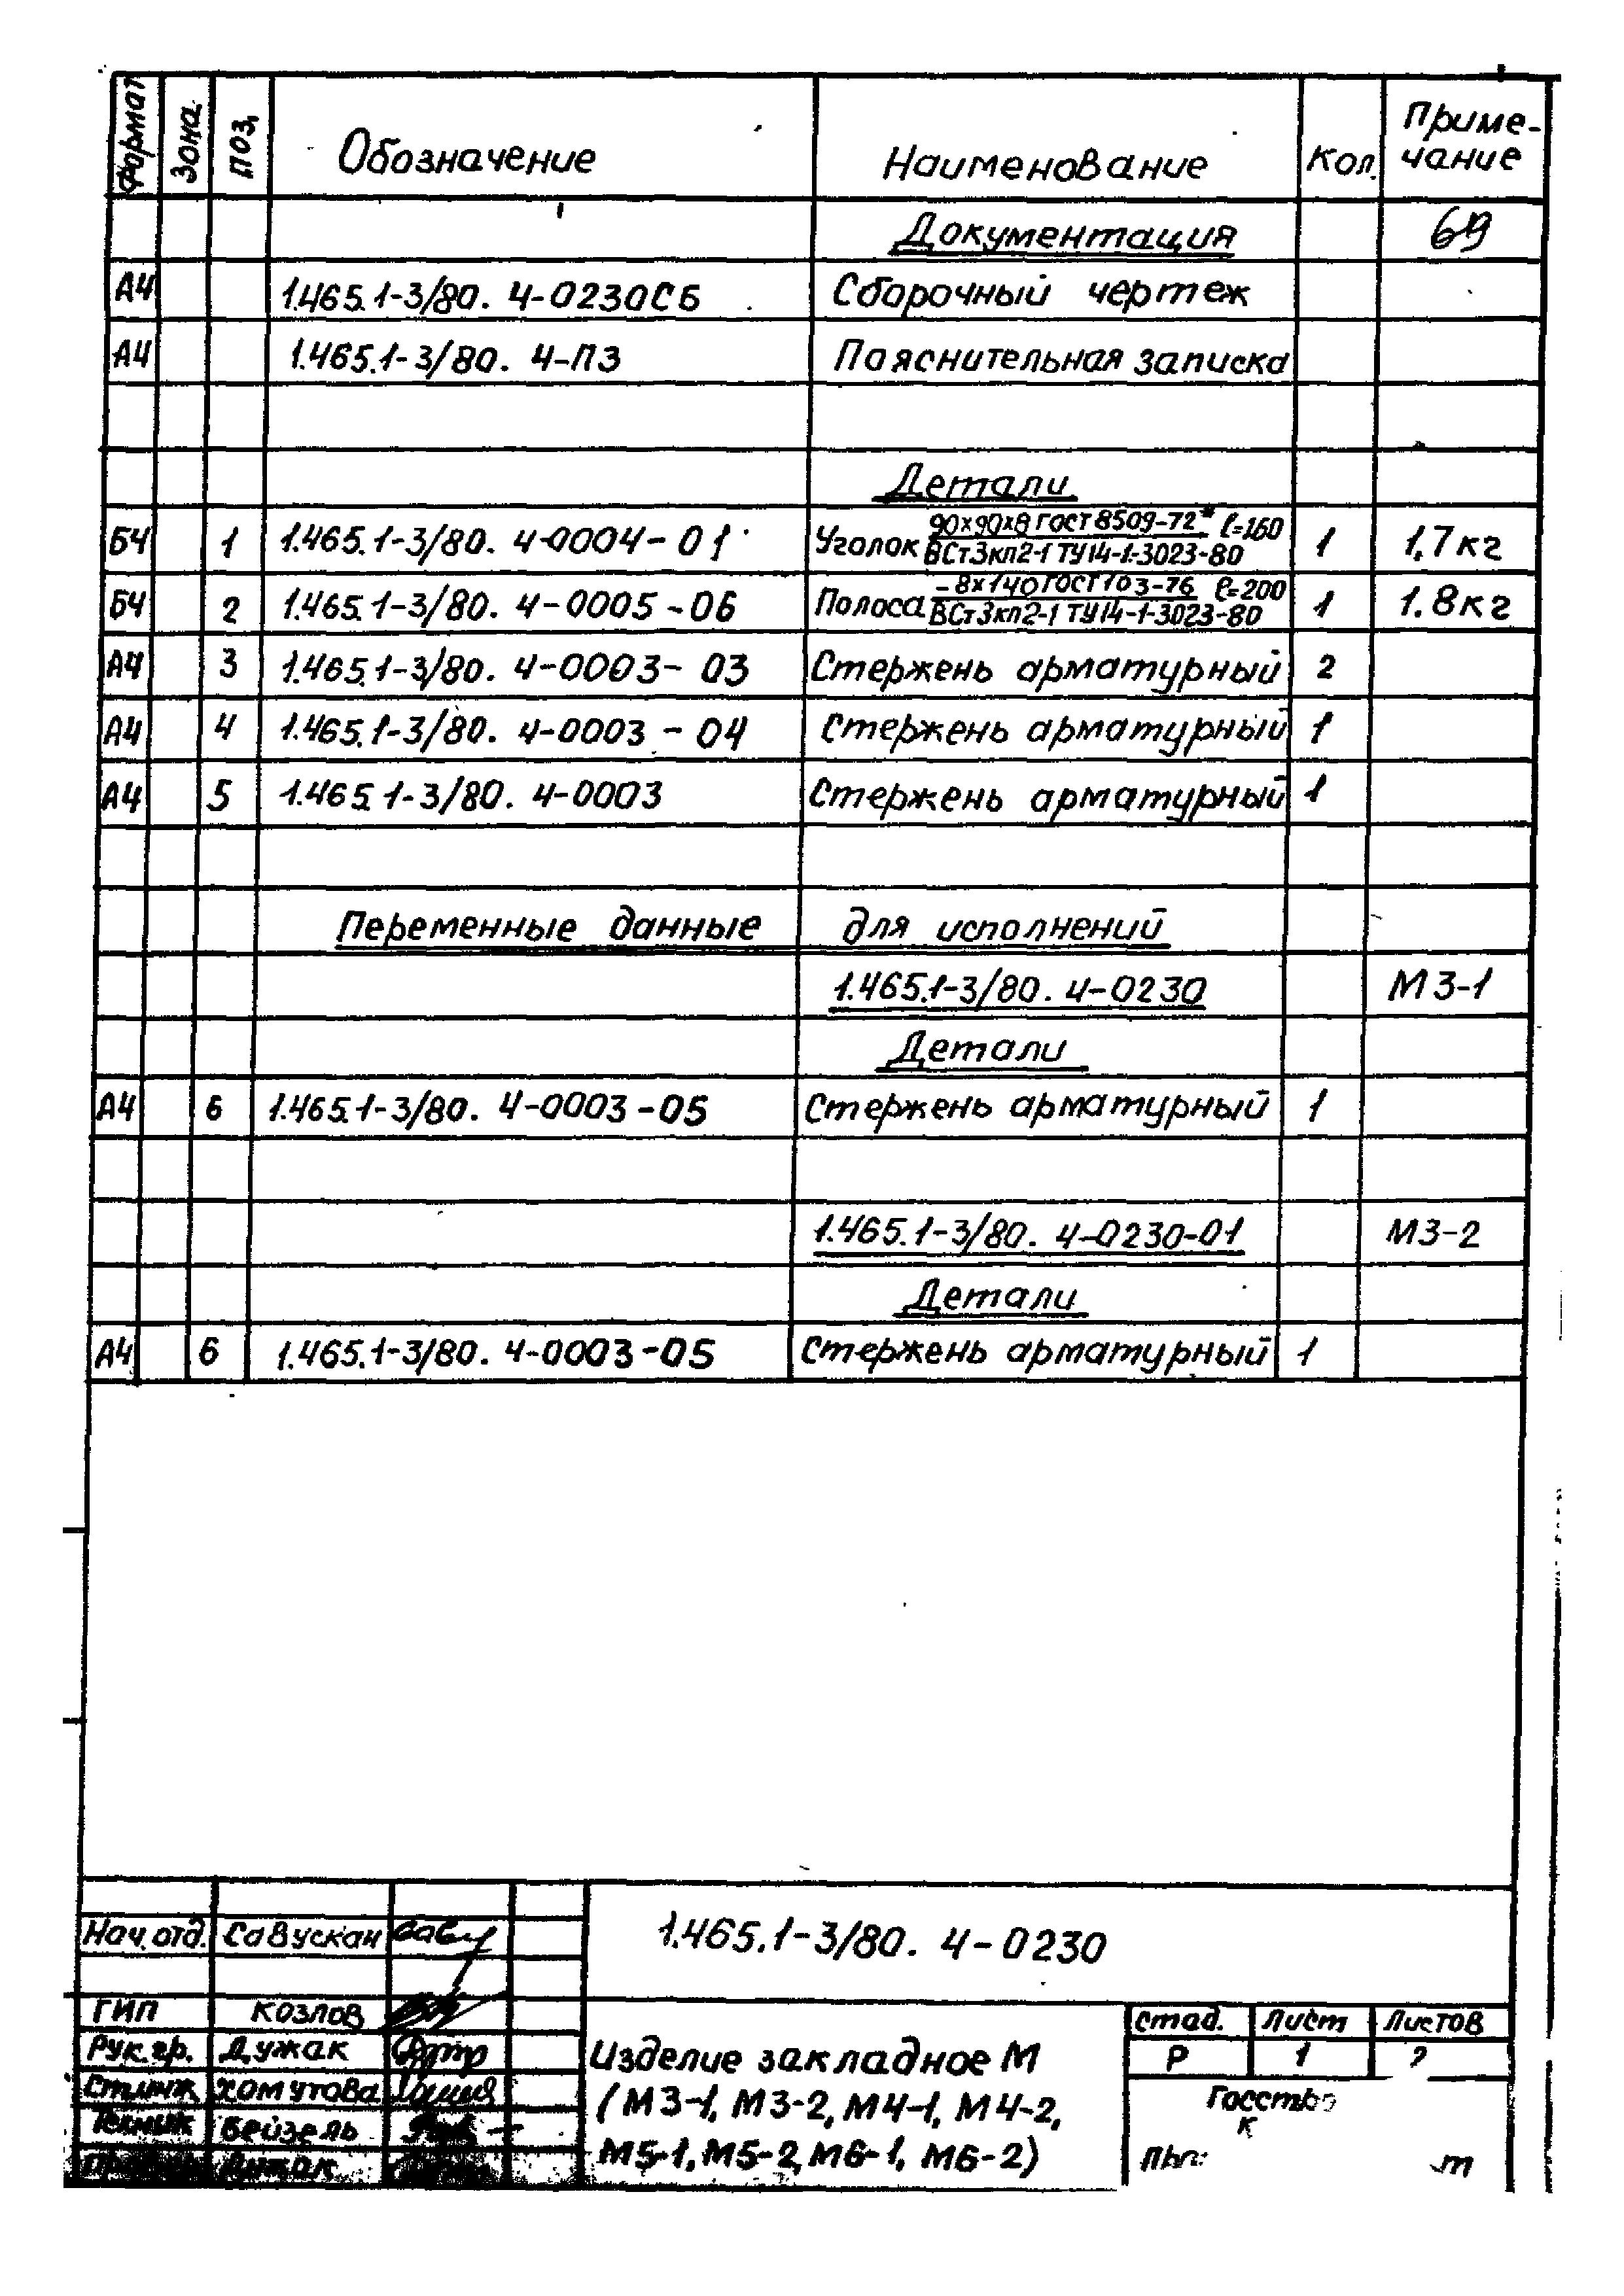 Формат Зона Поз. Обозначение Наименование Кол. Приме-
чание
Документация 69
А4 1.465.1-3/80. 4-0230СБ Сборочный чертеж
А4 1.465.1-3/80. 4-ПЗ Пояснительная записка
Детали
Б4 1 1.465.1-3/80. 4-0004-01 Уголок 90х90х8 ГОСТ 8509-72* ℓ=160 1 1,7кг
ВСт3кп2-1 ТУ14-1-3023-80
Б4 2 1.465.1-3/80. 4-0005-06 Полоса -8х140 ГОСТ 103-76 ℓ=200 1 1.8кг
ВСт3кп2-1 ТУ14-1-3023-80
А4 3 1.465.1-3/80. 4-0003-03 Стержень арматурный 2
А4 4 1.465.1-3/80. 4-0003-04 Стержень арматурный 1
А4 5 1.465.1-3/80. 4-0003 Стержень арматурный 1
Переменные данные для исполнений
1.465.1-3/80. 4-0230 М3-1
Детали
А4 6 1.465.1-3/80. 4-0003-05 Стержень арматурный 1
1.465.1-3/80. 4-0230-01 М3-2
Детали
А4 6 1.465.1-3/80. 4-0003-05 Стержень арматурный 1
Нач. отд. Савускан
1.465.1-3/80. 4-0230
ГИП Козлов
Рук. гр. Дужак
Ст.инж Хомутова
Техник Бейзель
Дужак
Изделие закладное М
(М3-1, М3-2, М4-1, М4-2,
М5-1, М5-2, М6-1, М6-2)
Стад. Лист Листов
Р 1